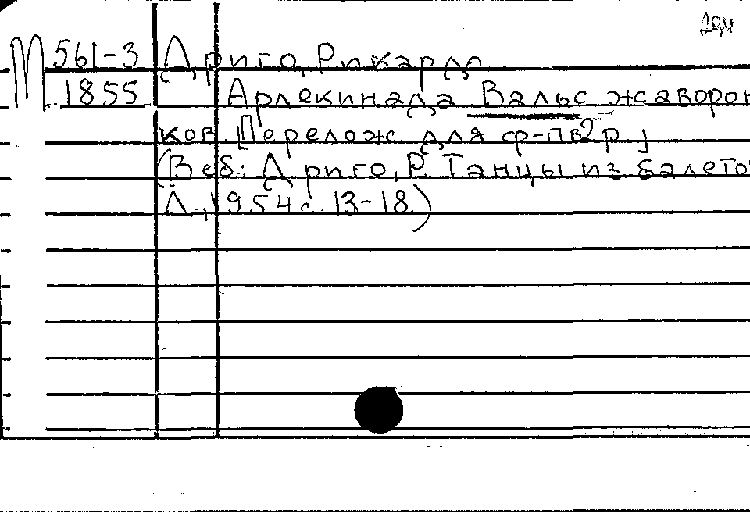 М 561-3 Дриго, Рикардо
1855 Арлекинада Вальс жаворон
ков [Перелож для ф-п в 2 р.]
(В сб: Дриго, Р. Танцы из балетов
Л., 1954 с. 13-18)